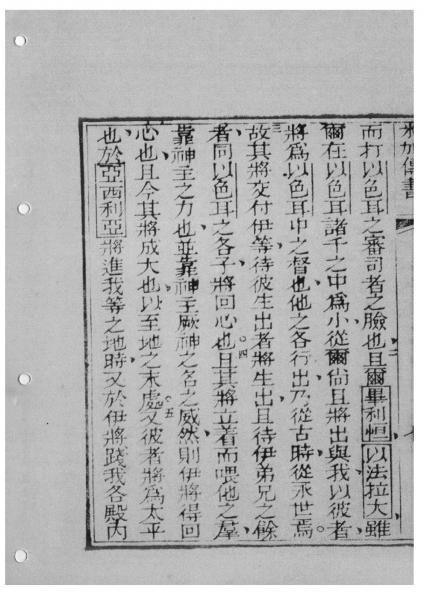 米加傳書
而打以色耳之審司者之臉也二且爾畢利恒以法拉大雖
爾在以色耳諸千之中為小從爾尚且將出與我以彼者
將為以色耳中之督也他之各行出乃從古時從永世焉。
三故其將交付伊等待彼生出者將生出且待伊弟兄之餘
者同以色耳之各子將回心也。四且其將立着而喂他之羣
靠神主之力也並靠神主厥神之名之威然則伊將得回
心也且今其將成大也以至地之末處。五又彼者將為太平
也於亞西利亞將進我等之地時又於伊將踐我各殿內